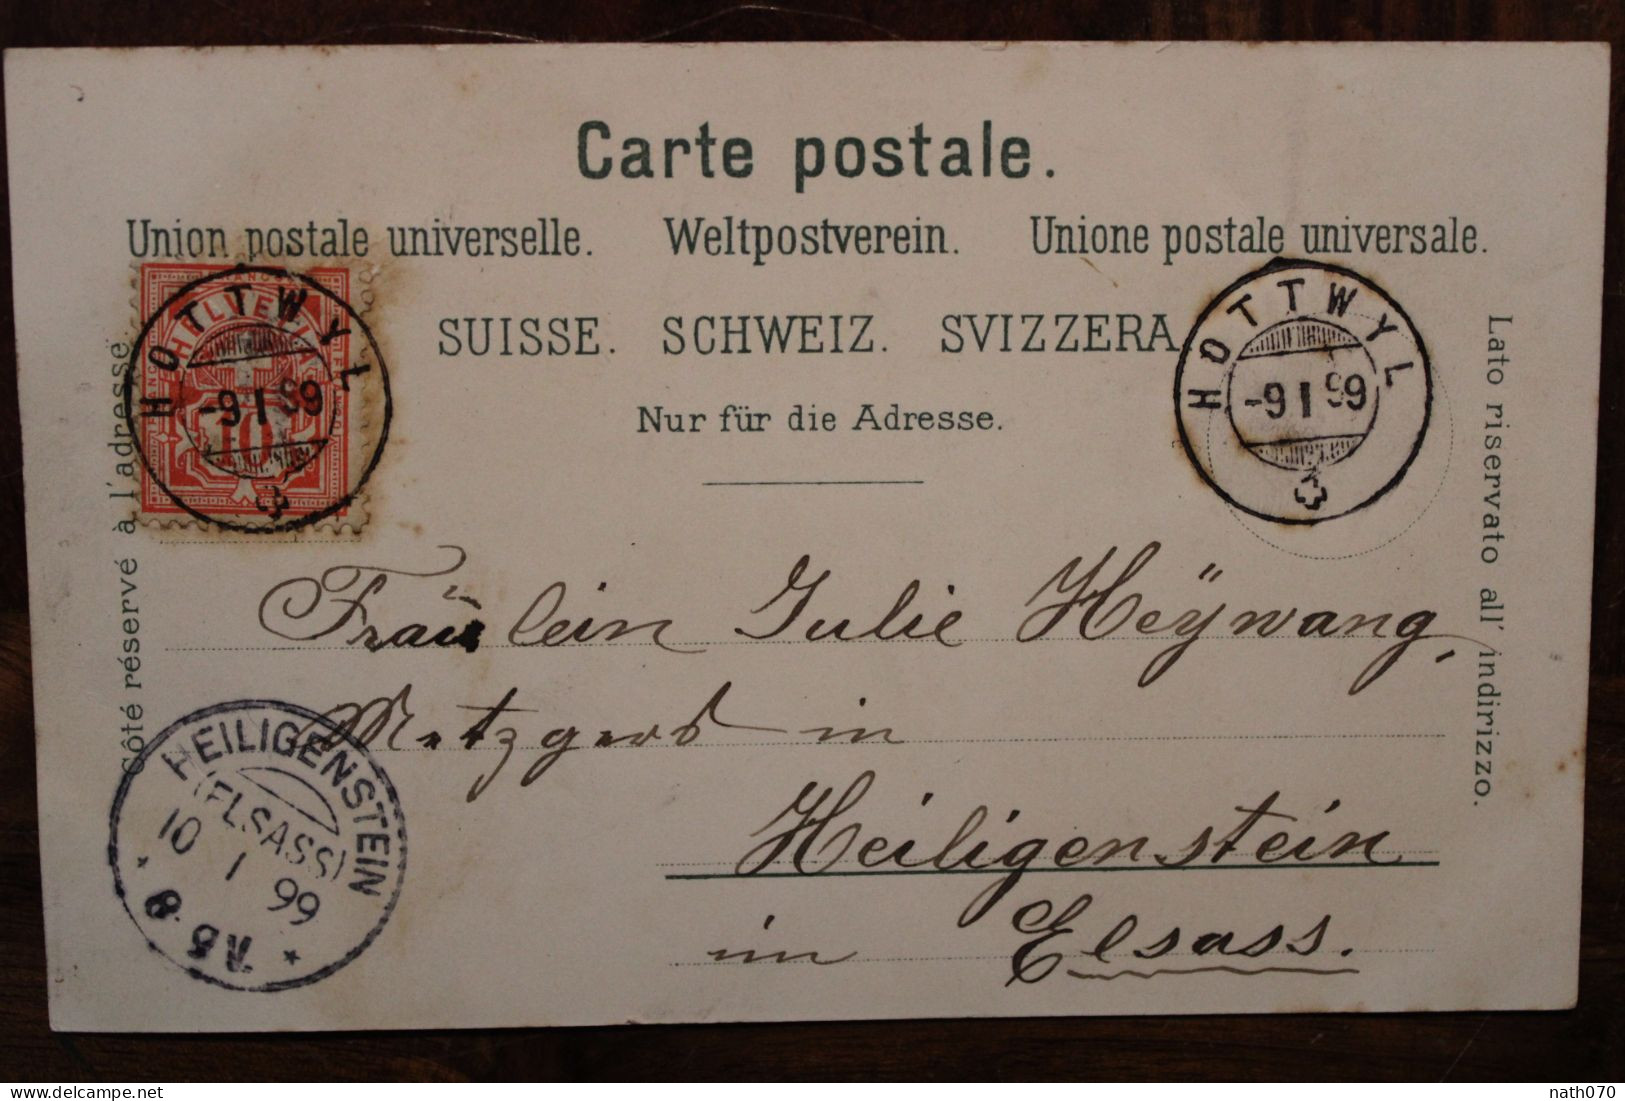 Carte postale.
Union postale universelle. Weltpostverein. Unione postale universale.
SUISSE. SCHWEIZ. SVIZZERA
Nur für die Adresse.
Côté réservé à l'adresse
Lato riservato all' indirizzo.
FRANCO
HELVETIA
10
HOTTWYL
-9 I 99
HOTTWYL
-9 I 99
Fräulein Julie Heÿwang,
Metzgers in
Heiligenstein
im Elsass.
HEILIGENSTEIN
(ELSASS)
10
1
99
nath070